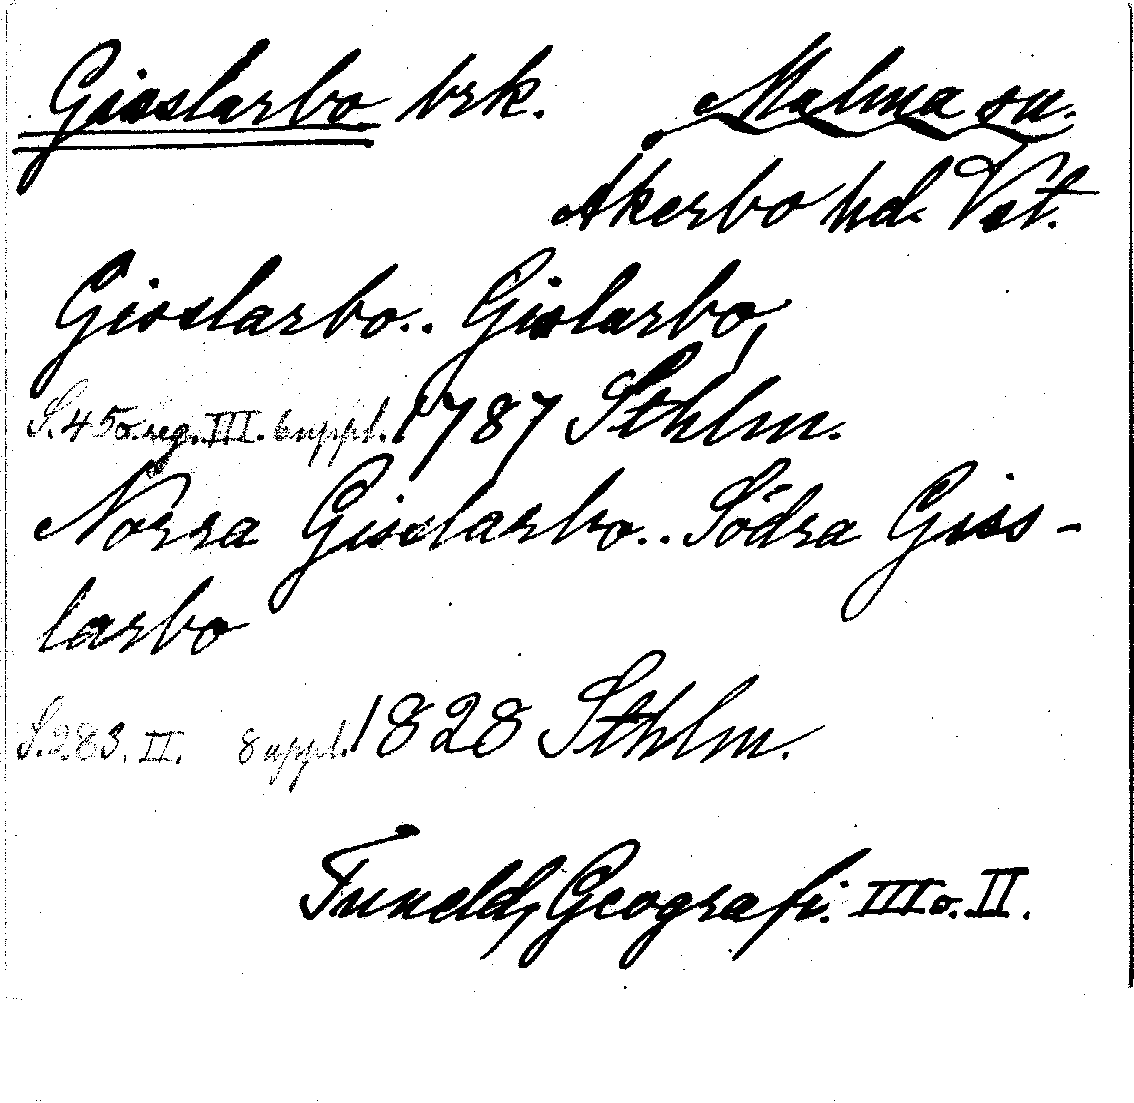 Gisslarbo brk. Malma sn.
Åkerbo hd. Vst.
Gisslarbo.. Gislarbo,
S. 45 o. reg. III. 6 uppl. 1787 Sthlm.
Norra Gisslarbo.. Södra Giss-
larbo
S. 283. II. 8 uppl. 1828 Sthlm.
Tuneld, Geografi. III o. II.